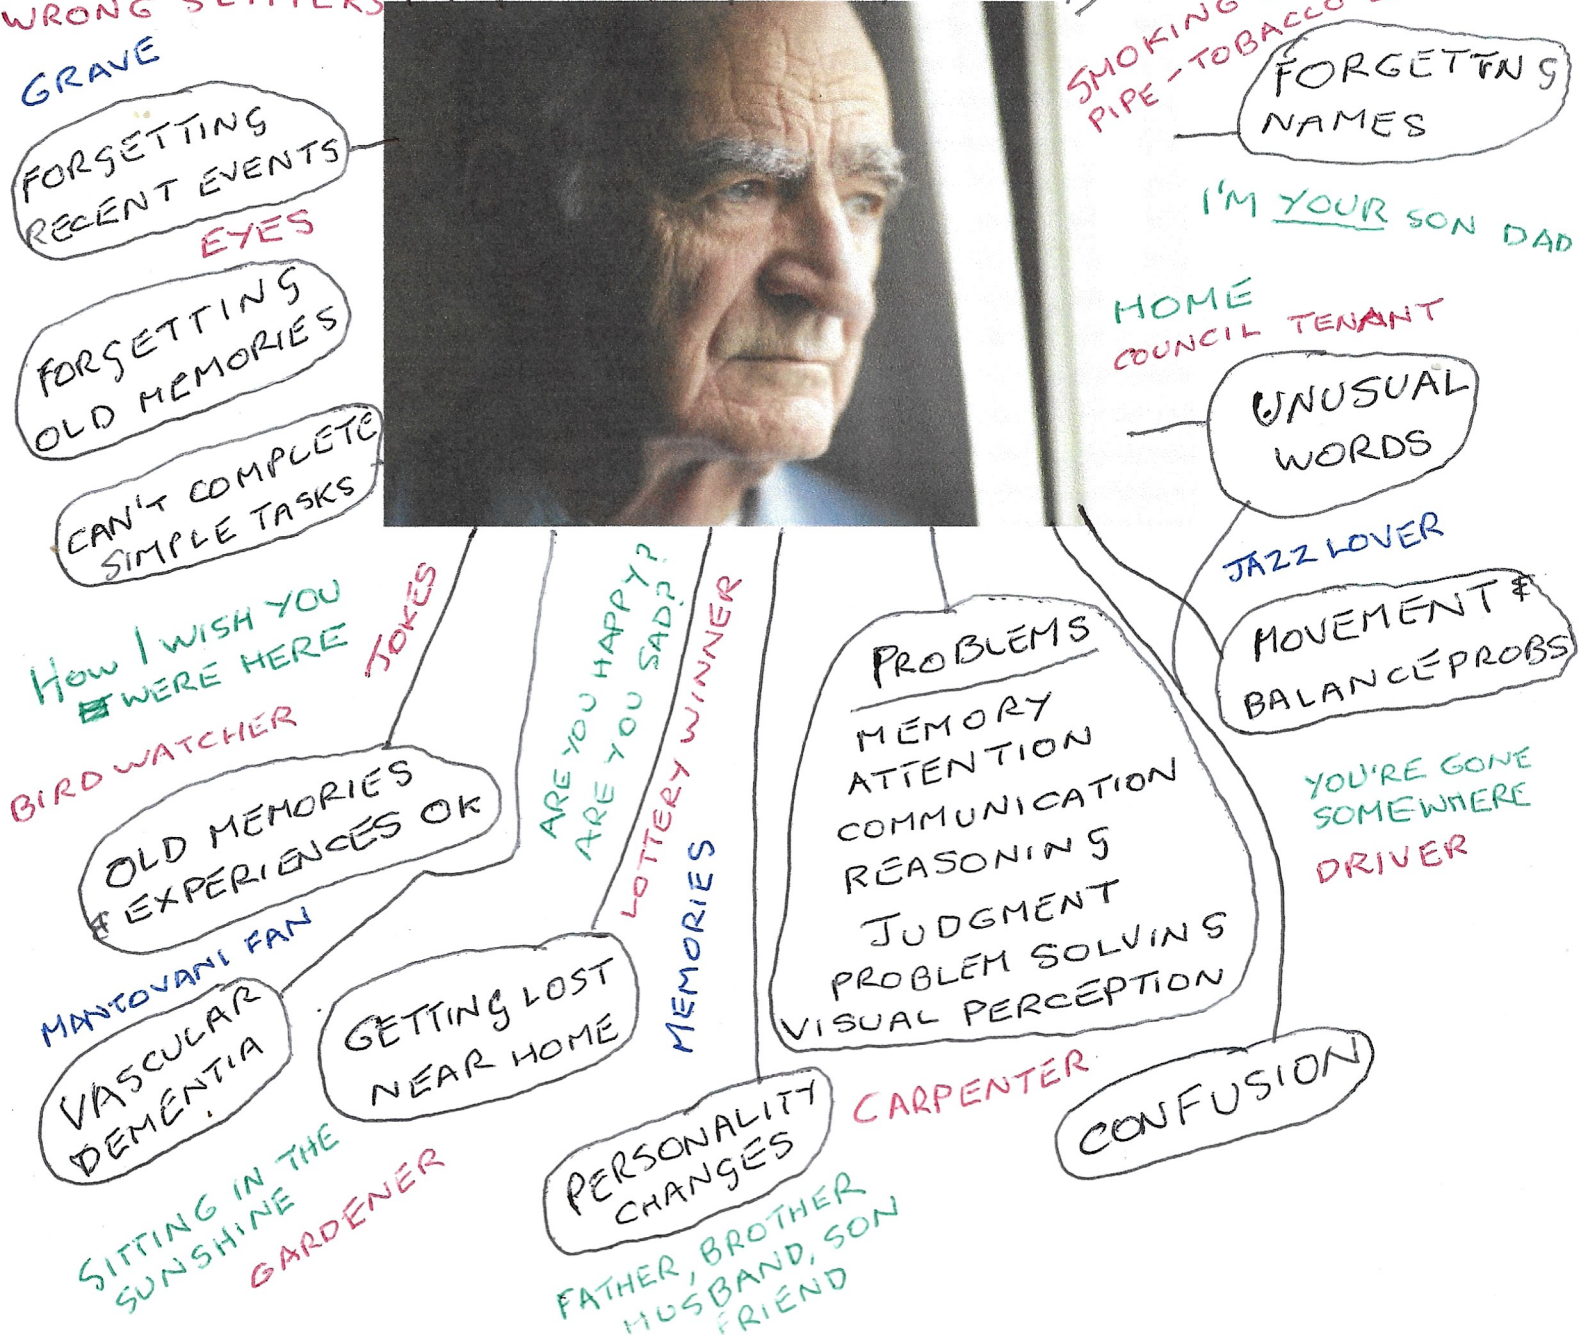 WRONG SLIPPERS
GRAVE
FORGETTING
RECENT EVENTS
EYES
FORGETTING
OLD MEMORIES
CAN'T COMPLETE
SIMPLE TASKS
HOW I WISH YOU
WERE HERE
JOKES
BIRD WATCHER
OLD MEMORIES
& EXPERIENCES OK
MANTOVANI FAN
VASCULAR
DEMENTIA
SITTING IN THE
SUNSHINE
GARDENER
GETTING LOST
NEAR HOME
ARE YOU HAPPY?
ARE YOU SAD?
LOTTERY WINNER
MEMORIES
PERSONALITY
CHANGES
FATHER, BROTHER
HUSBAND, SON
FRIEND
PROBLEMS
MEMORY
ATTENTION
COMMUNICATION
REASONING
JUDGMENT
PROBLEM SOLVING
VISUAL PERCEPTION
CARPENTER
CONFUSION
SMOKING
PIPE - TOBACCO
FORGETTING
NAMES
I'M YOUR SON DAD
HOME
COUNCIL TENANT
UNUSUAL
WORDS
JAZZ LOVER
MOVEMENT &
BALANCE PROBS
YOU'RE GONE
SOMEWHERE
DRIVER